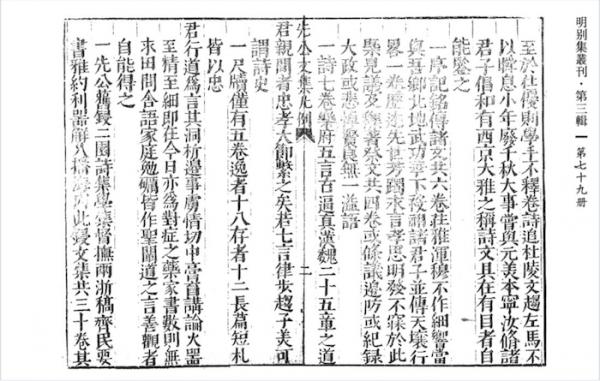 明別集叢刊·第三輯 — 第七十九冊
至於杜優則學手不釋卷詩追杜陵文趨左馬不
以瞬息小年廢千秋大事嘗與元美本寧汝脩諸
君子倡和有西京大雅之稱詩文具在有目者自
能鑒之
一序記銘傳諸文共六卷莊雅渾穆不作細響當
與吾鄉北地武功諸君子並傳天壤行
畧一卷歷述先世芳躅永言孝思明發不寐於此
槩見雜著祭文共四卷或條議邊防或紀録
大政或悲賢良無一溢語
一詩七卷樂府五言古逼真漢魏二十五童之道
先公文集凡例
二
君親聞者忠孝大節繫之矣若七言律步趨子美可
謂詩史
一尺牘僅有五卷逸者十八存者十二長篇短札
皆以忠
君行道為言其洞析邊事虜情切中膏肓講論火器
至精至細即在今日亦為對症之藥家書數則無
求田問合語家庭勉礪皆作聖闡道之言善觀者
自能得之
一先公舊鋟二園詩集學集督撫兩浙稿齊民要
書雅約利器解八此鋟文集共三十卷其